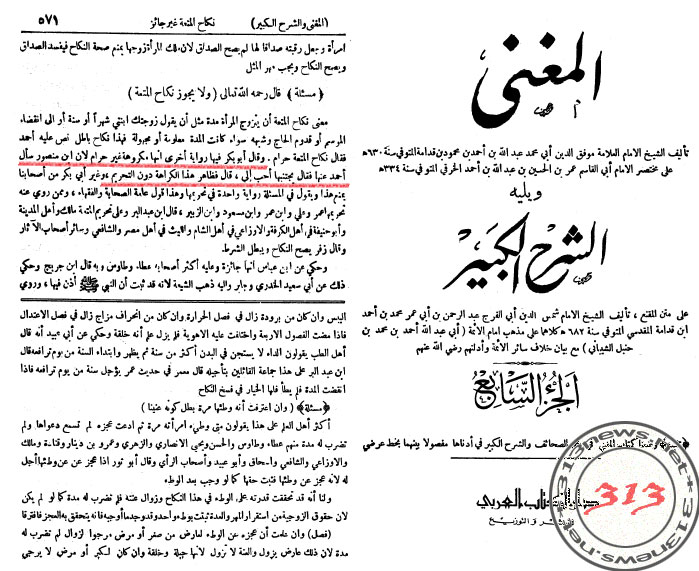 ٥٧١ نكاح المتعة غير جائز (المغني والشرح الكبير)
امرأة وجعل رقبته صداقا لها لم يصح الصداق لان ملك المرأة زوجها يمنع صحة النكاح فيفسد الصداق
ويصح النكاح ويجب مهر المثل
﴿مسئلة﴾ قال رحمه الله تعالى (ولا يجوز نكاح المتعة)
معنى نكاح المتعة أن يتزوج المرأة مدة مثل أن يقول زوجتك ابنتي شهراً أو سنة أو الى انقضاء
الموسم أو قدوم الحاج وشبهه سواء كانت المدة معلومة أو مجهولة فهذا نكاح باطل نص عليه أحمد
فقال نكاح المتعة حرام . وقال أبو بكر فيها رواية أخرى أنها مكروهة غير حرام لان ابن منصور سأل
أحمد عنها فقال يجتنبها أحب إلي ، قال فظاهر هذا الكراهة دون التحريم ، وغير أبي بكر من أصحابنا
يمنع هذا ويقول في المسئلة رواية واحدة في تحريمها وهذا قول عامة الصحابة والفقهاء ، وممن روي عنه
تحريمها عمر وعلي وابن عمر وابن مسعود وابن الزبير ، قال ابن عبد البر وعلى تحريم المتعة مالك وأهل المدينة
وأبو حنيفة في أهل الكوفة والاوزاعي في أهل الشام والليث في أهل مصر والشافعي وسائر أصحاب الآثار
وقال زفر يصح النكاح ويبطل الشرط.
وحكي عن ابن عباس أنها جائزة وعليه أكثر أصحابه عطاء وطاوس وبه قال ابن جريج وحكي
ذلك عن أبي سعيد الخدري وجابر واليه ذهب الشيعة لانه قد ثبت أن النبي ﷺ أذن فيها ، وروي
اليبس وان كان من برودة زال في فصل الحرارة وان كان من انحراف مزاج زال في فصل الاعتدال
فاذا مضت الفصول الاربعة واختلفت عليه الاهوية فلم يزل علم أنه خلقة وحكي عن أبي عبيد أنه قال
أهل الطب يقولون الداء لا يستجن في البدن أكثر من سنة ثم يظهر وابتداء السنة من يوم ترافعه قال
ابن عبد البر على هذا جماعة القائلين بتأجيله قال معمر في حديث عمر يؤجل سنة من يوم ترافعه فاذا
انقضت المدة فلم يطأ فلها الخيار في فسخ النكاح
﴿مسئلة﴾ (وان اعترفت أنه وطئها مرة بطل كونه عنينا)
أكثر أهل العلم على هذا يقولون متى وطىء امرأته مرة ثم ادعت عجزه لم تسمع دعواها ولم
تضرب له مدة منهم عطاء وطاوس والحسن ويحيى الانصاري والزهري وعمرو بن دينار وقتادة ومالك
والاوزاعي والشافعي واسحاق وأبو عبيد وأصحاب الرأي وقال أبو ثور اذا عجز عن وطئها أجل
له لانه عجز عن وطئها فثبت حقها كما لو وجب بعد الوطء
ولنا أنه قد تحققت قدرته على الوطء في هذا النكاح وزوال عنته فلم تضرب له مدة كما لو لم يكن
لان حقوق الزوجية من استقرار المهر والعدة تثبت بوطء واحد وقد وجد وأما وجبه فانه يتحقق به العجز فافترقا
(فصل) وان علمت أن عجزه عن الوطء لعارض من صغر أو مرض مرجو الزوال لم تضرب له
مدة لان ذلك عارض يزول والعنة لا تزول لانها جبلة وخلقة وان كان لكبر أو مرض لا يرجى
المغني
تأليف الشيخ الامام العلامة موفق الدين أبي محمد عبد الله بن أحمد بن محمود بن قدامة المتوفي سنة ٦٣٠ هـ
على مختصر الامام أبي القاسم عمر بن الحسين بن عبد الله بن أحمد الخرقي المتوفي سنة ٣٣٤ هـ
ويليه
الشرح الكبير
على متن المقنع ، تأليف الشيخ الامام شمس الدين أبي الفرج عبد الرحمن بن أبي عمر محمد بن أحمد
ابن قدامة المقدسي المتوفي سنة ٦٨٢ هـ كلاهما على مذهب امام الأئمة (أبي عبد الله أحمد بن محمد بن
حنبل الشيباني) مع بيان خلاف سائر الأئمة وأدلتهم رضي الله عنهم
الجزء السابع
كتاب المغني في الصحائف والشرح الكبير في أدناها مفصولا بينهما بخط عرضي
دار الكتاب العربي
للنشر والتوزيع
313
313news.net*313news.net